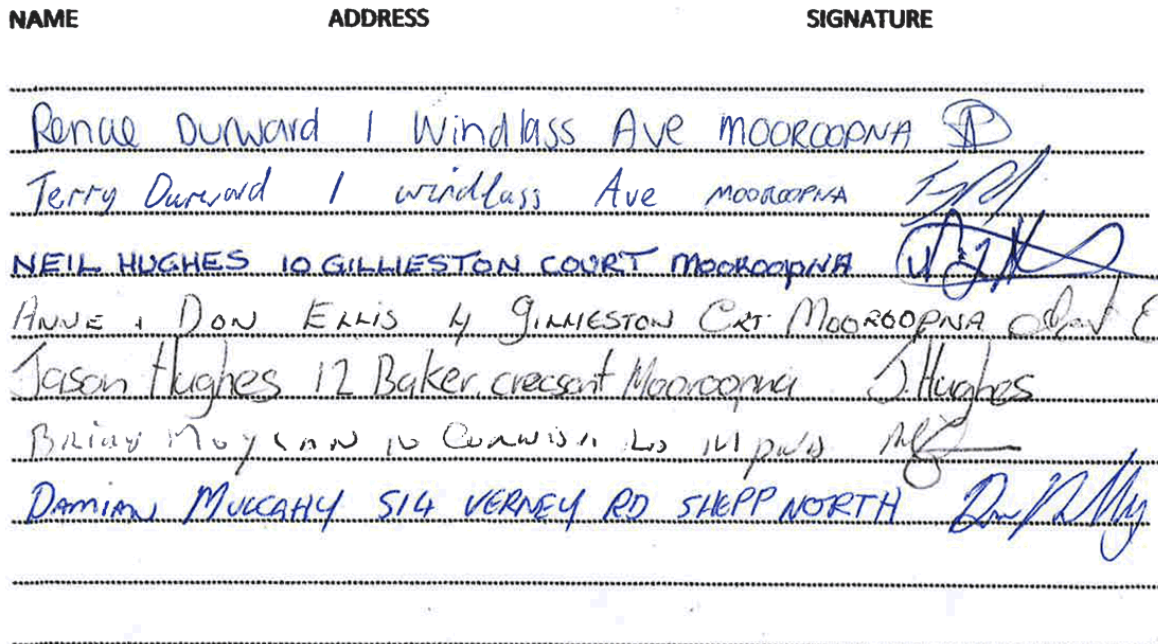 NAME ADDRESS SIGNATURE
Renae Durward 1 Windlass Ave MOOROOPNA
Terry Durward 1 windlass Ave MOOROOPNA
NEIL HUGHES 10 GILLIESTON COURT MOOROOPNA
ANNE + DON ELLIS 4 GILLIESTON CRT MOOROOPNA
Jason Hughes 12 Baker crecsant Mooroopna J. Hughes
BRIAN MOYLAN 10
DAMIAN MULCAHY 514 VERNEY RD SHEPP NORTH